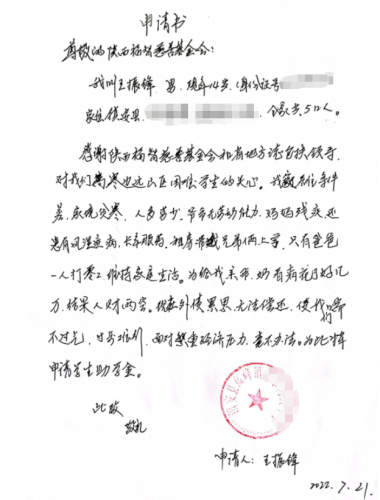 申请书
尊敬的陕西杨凌慈善基金会：
我叫王振锋 男. 现年14岁. (身份证号
家住镇安县. 全家共5口人。
感谢陕西杨凌慈善基金会和省地方诸多扶领导
对我们高寒边远山区困难学生的关心。我家居住条件
差，家境贫寒，人多劳少，爷爷无劳动能力，妈妈残疾还
患有风湿疾病，长年服药，租房带我兄弟俩上学，只有爸爸
一人打零工维持家庭生活。为给我奶奶有病花了好几
万，结果人财两空。现在外债累累，无法偿还，使我们
不过气，日子难 面对繁重经济压力，毫不办法。为此特
申请学生助学金。
此致
敬礼
申请人：王振锋
2022.7.21.